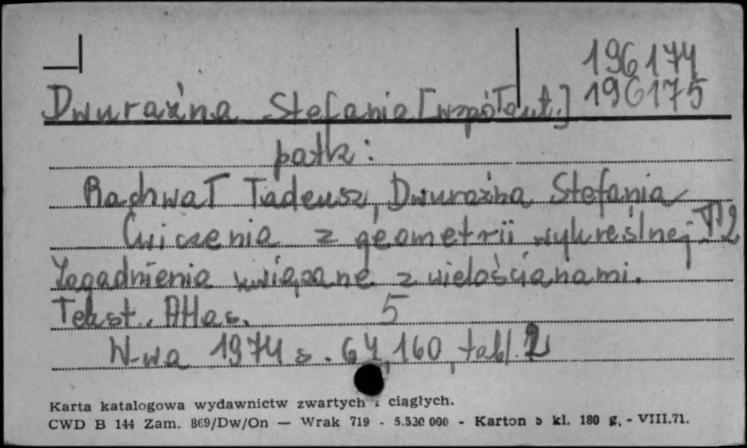 196174
Dwuraźna Stefania [współaut.] 196175
patrz:
Rachwał Tadeusz, Dwuraźna Stefania
Ćwiczenia z geometrii wykreślnej. T 2
Zagadnienia związane z wielościanami.
Tekst. Atlas. 5
W-wa 1974 s. 64, 160, tabl. 2
Karta katalogowa wydawnictw zwartych i ciągłych.
CWD B 144 Zam. 869/Dw/On — Wrak 719 - 5.530 000 - Karton b kl. 180 g, - VIII.71.